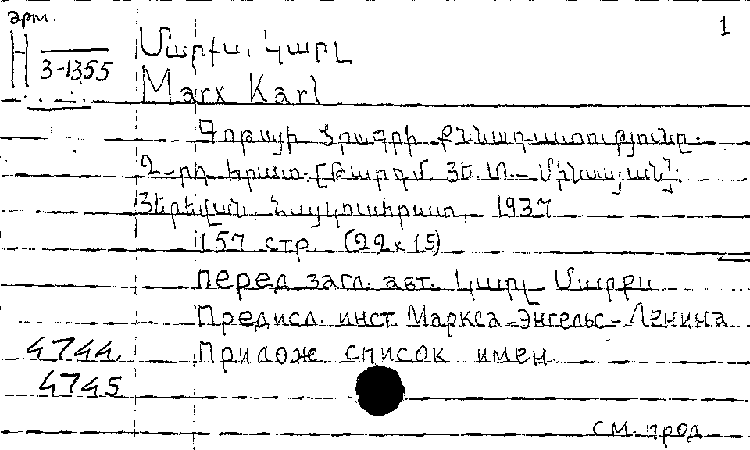 арм. 1
Н 3-1355
Մարքս, Կարլ
Marx Karl
Գոթայի ծրագրի քննադատությունը.
2-րդ հրատ. [Թարգմ. Յե. Տ.-Մինասյան].
Յերեվան. Հայկուսհրատ, 1937
157 стр. (22x15)
перед загл. авт. Կարլ Մարքս
Предисл. инст. Маркса-Энгельс-Ленина
4744 Прилож список имен
4745
см. прод